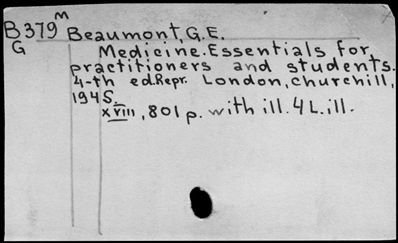 B379 M Beaumont, G.E.
G Medicine. Essentials for
practitioners and students.
4-th ed. Repr. London, Churchill,
1945.
xviii, 801 p. with ill. 4 L. ill.